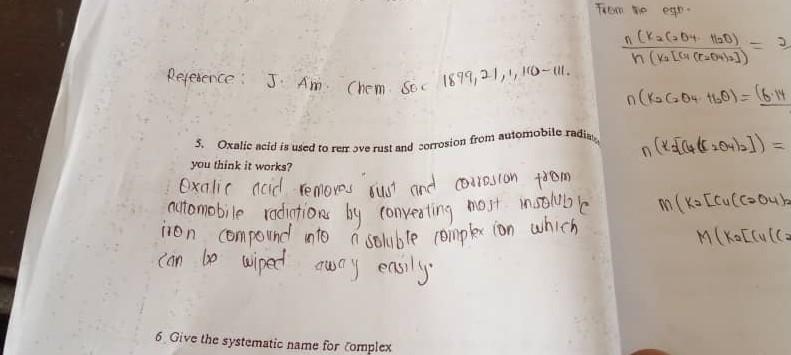 Reference: J. Am. Chem. Soc 1899, 21, 1, 110-111.
5. Oxalic acid is used to remove rust and corrosion from automobile radiato
you think it works?
Oxalic acid removes rust and corrosion from
automobile radiations by converting most insoluble
iron compound into a soluble complex ion which
can be wiped away easily.
6. Give the systematic name for complex
From the eqn.
n(K2C2O4. H2O) = 2
n(K2[Cu(C2O4)2])
n(K2C2O4. H2O) = (6.14
n(K2[Cu(C2O4)2]) =
m(K2[Cu(C2O4)2
M(K2[Cu(C2